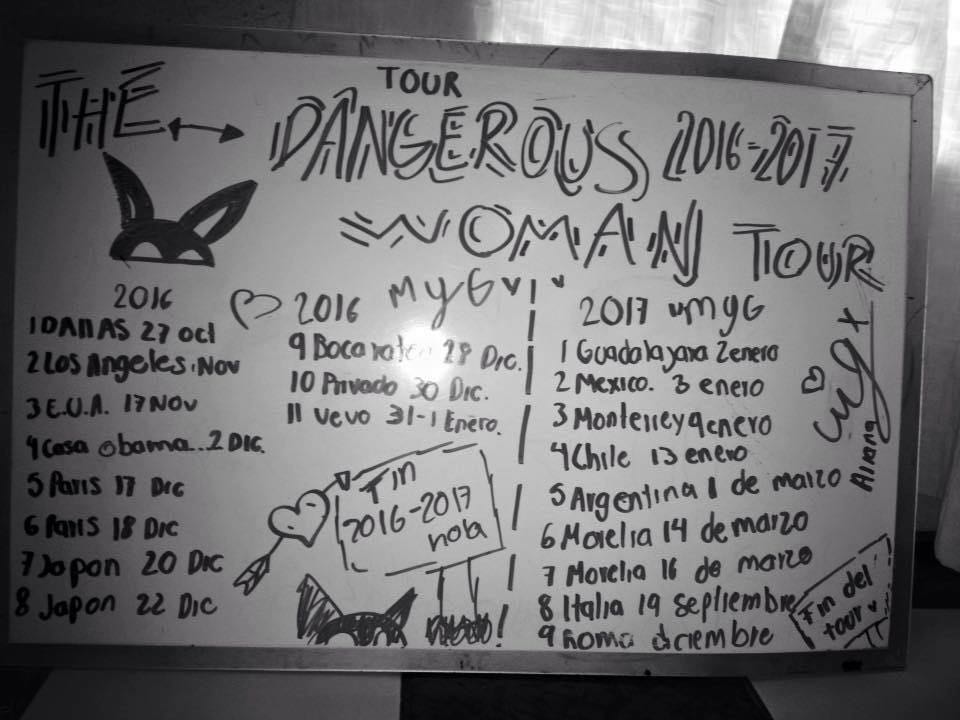 TOUR
THE DANGEROUS 2016-2017
WOMAN TOUR
MYG
2016
1 DALLAS 27 oct
2 Los Angeles 1 Nov
3 E.U.A. 17 Nov
4 Casa obama 2 DIC.
5 Paris 17 Dic
6 Paris 18 Dic
7 Japon 20 Dic
8 Japon 22 Dic
2016
9 Boca raton 28 Dic.
10 Privado 30 Dic.
11 Vevo 31-1 Enero.
Fin
2016-2017
hola
2017 myG
1 Guadalajara 2 enero
2 Mexico. 3 enero
3 Monterrey 9 enero
4 Chile 13 enero
5 Argentina 1 de marzo
6 Morelia 14 de marzo
7 Morelia 16 de marzo
8 Italia 19 septiembre
9 Roma diciembre
Fin del
tour